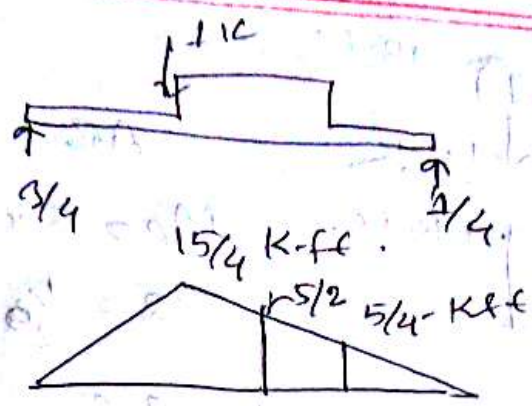 1K
3/4
1/4.
15/4 K-ft.
5/2
5/4- K-ft